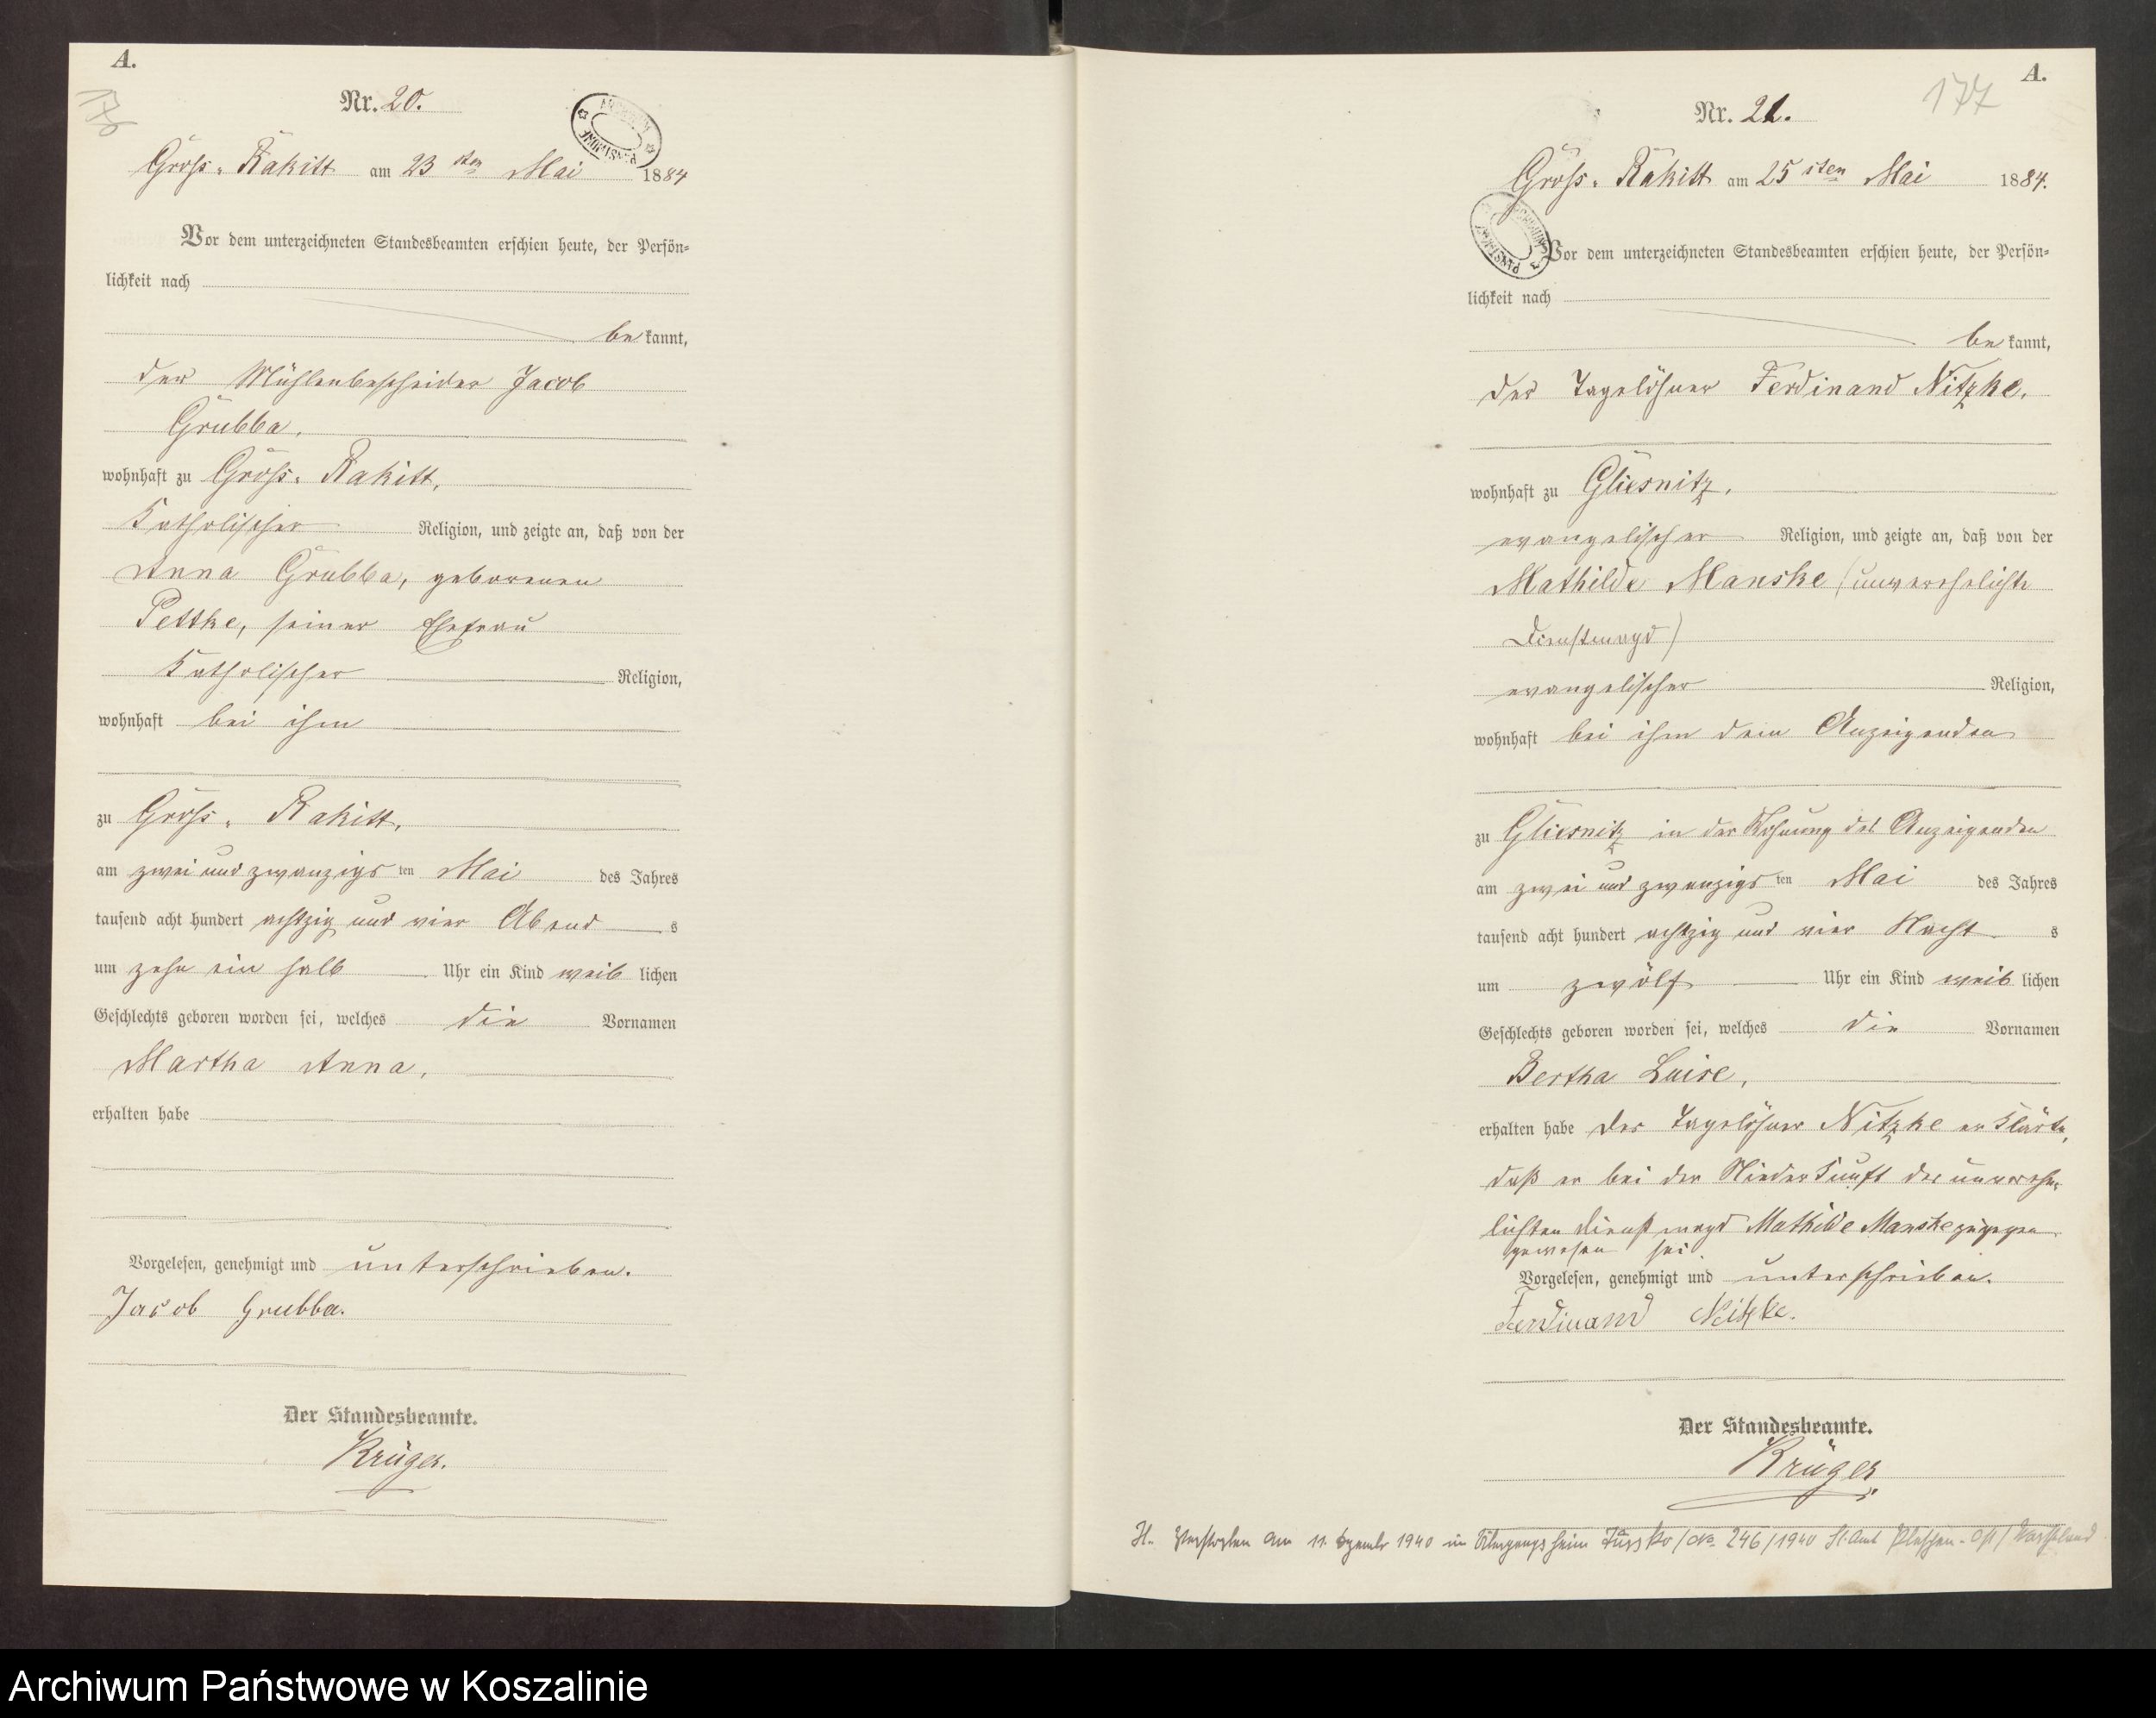 A.
Nr. 20.
Gross-Rakitt am 23 sten Mai 1884
Vor dem unterzeichneten Standesbeamten erschien heute, der Persön-
lichkeit nach
be kannt,
der Mühlenbescheider Jacob
Grubba,
wohnhaft zu Gross-Rakitt,
Katholischer Religion, und zeigte an, daß von der
Anna Grubba, geborenen
Pettke, seiner Ehefrau
Katholischer Religion,
wohnhaft bei ihm
zu Gross-Rakitt,
am zwei und zwanzigs ten Mai des Jahres
tausend acht hundert achtzig und vier Abend s
um zehn ein halb Uhr ein Kind weib lichen
Geschlechts geboren worden sei, welches die Vornamen
Martha Anna,
erhalten habe
Vorgelesen, genehmigt und unterschrieben.
Jacob Grubba.
Der Standesbeamte.
Krüger.
A.
177
Nr. 21.
Gross-Rakitt am 25 sten Mai 1884.
Vor dem unterzeichneten Standesbeamten erschien heute, der Persön-
lichkeit nach
be kannt,
der Tagelöhner Ferdinand Nitzke,
wohnhaft zu Gliesnitz,
evangelischer Religion, und zeigte an, daß von der
Mathilde Manske (unverehelichte
Dienstmagd)
evangelischer Religion,
wohnhaft bei ihm dem Anzeigenden
zu Gliesnitz in der Wohnung des Anzeigenden
am zwei und zwanzigs ten Mai des Jahres
tausend acht hundert achtzig und vier Nacht s
um zwölf Uhr ein Kind weib lichen
Geschlechts geboren worden sei, welches die Vornamen
Bertha Luise,
erhalten habe der Tagelöhner Nitzke erklärte,
daß er bei der Niederkunft der unverehe-
lichten Dienstmagd Mathilde Manske zugegen
gewesen sei
Vorgelesen, genehmigt und unterschrieben.
Ferdinand Nitzke.
Der Standesbeamte.
Krüger
H. Verstorben am 11. Dezember 1940 im 246/1940 St. Amt Pleschen-Ost/Wartheland
Archiwum Państwowe w Koszalinie